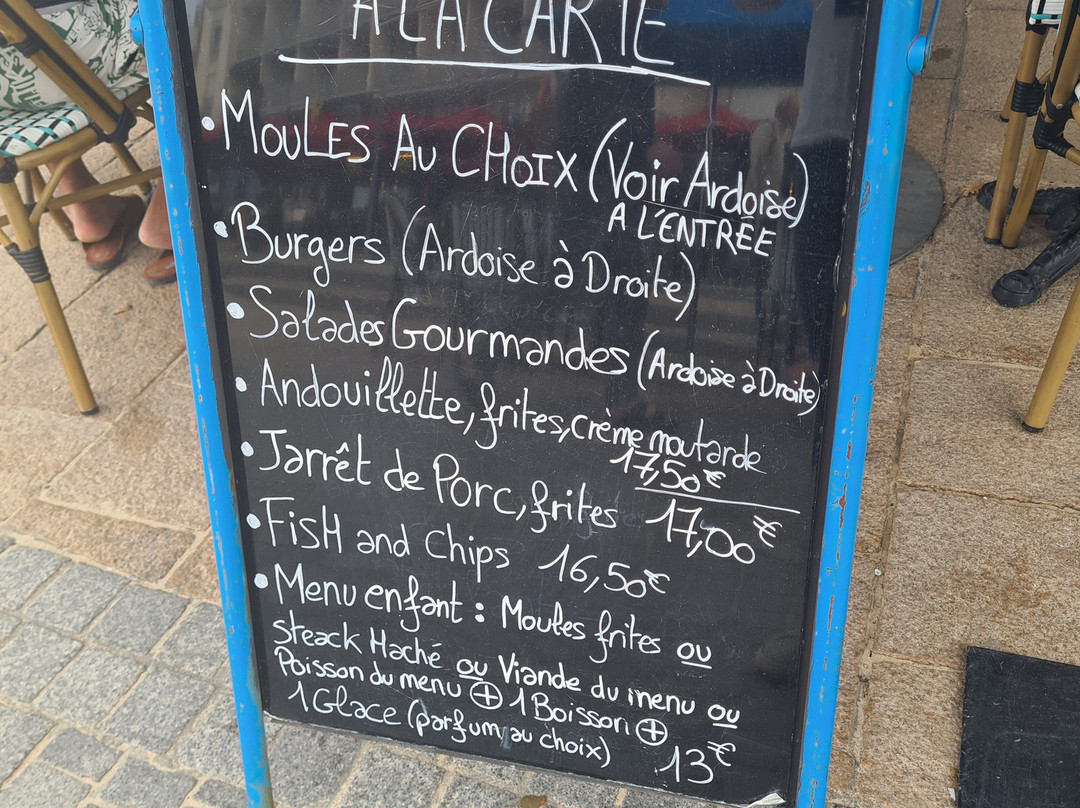 A LA CARTE
• MOULES AU CHOIX (Voir Ardoise)
A L'ENTRÉE
• Burgers (Ardoise à Droite)
• Salades Gourmandes (Ardoise à Droite)
• Andouillette, frites, crème moutarde
17,50€
• Jarrêt de Porc, frites 17,00€
• FisH and chips 16,50€
• Menu enfant : Moules frites ou
steack Haché ou Viande du menu ou
Poisson du menu ⊕ 1 Boisson ⊕
1 Glace (parfum au choix) 13€